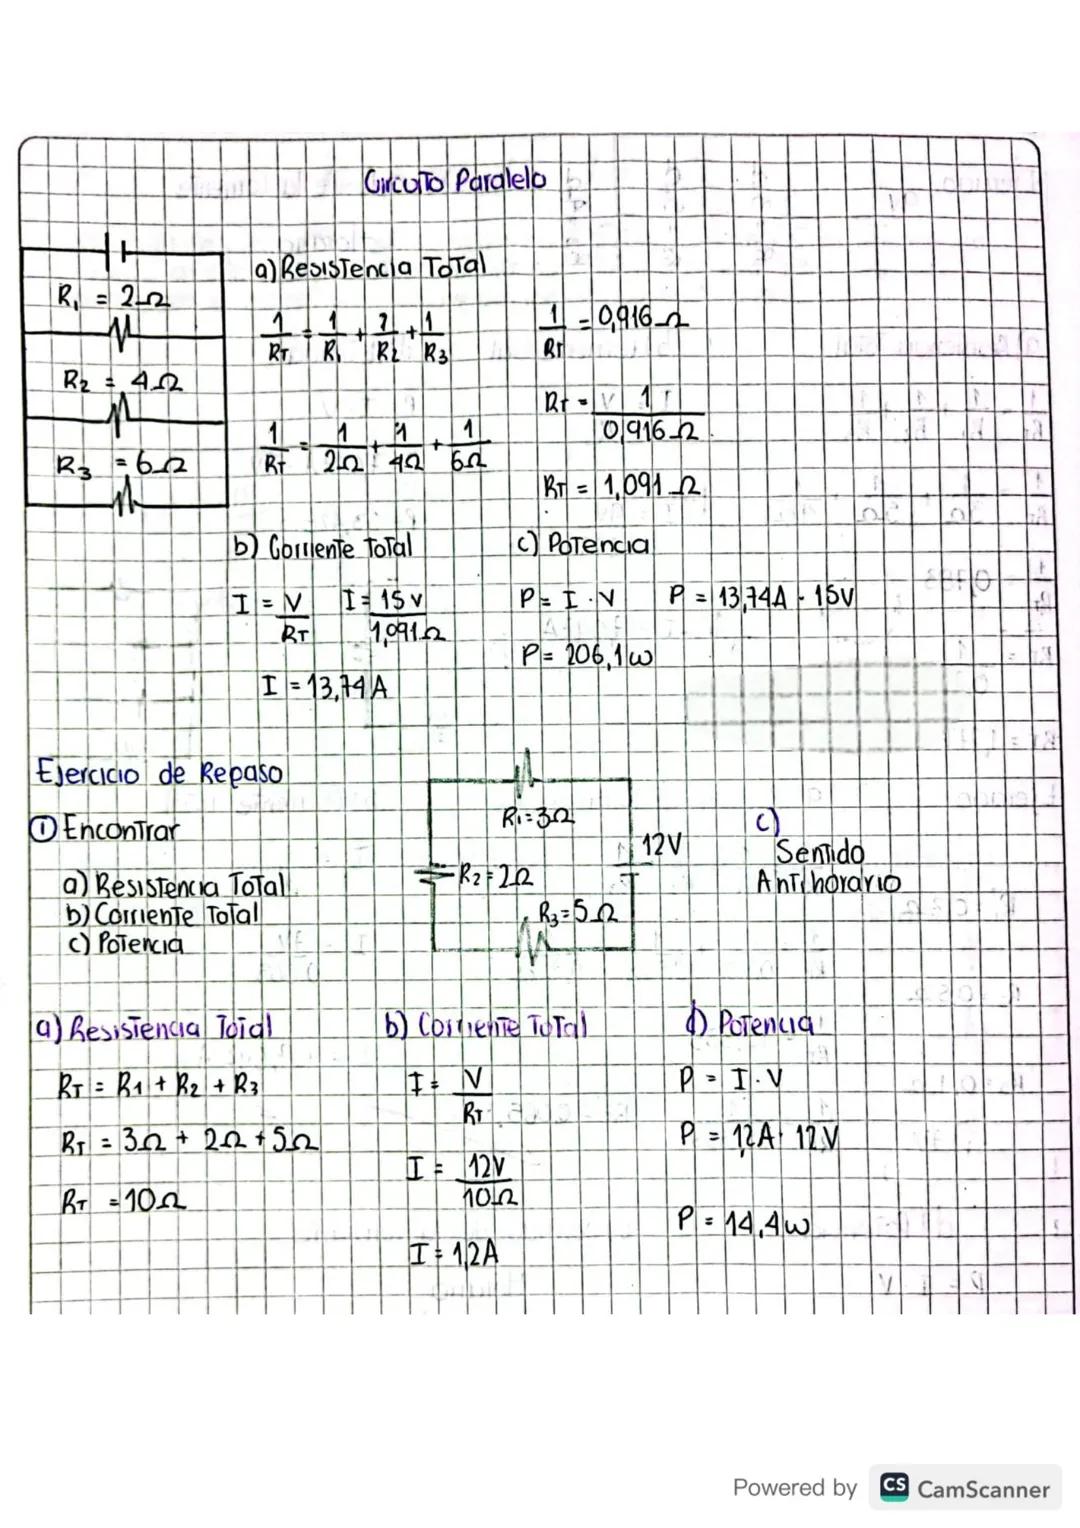 Circuito Paralelo
R₁ = 2Ω
R₂ = 4Ω
R₃ = 6Ω
a) Resistencia Total
1/RT = 1/R₁ + 1/R₂ + 1/R₃
1/RT = 1/2Ω + 1/4Ω + 1/6Ω
1/RT = 0,916Ω
RT = 1/0,916Ω
RT = 1,091Ω
b) Corriente Total
I = V/RT
I = 15v/1,091Ω
I = 13,74A
c) Potencia
P = I · V
P = 13,74A · 15V
P = 206,1w
Ejercicio de Repaso
① Encontrar
a) Resistencia Total
b) Corriente Total
c) Potencia
R₁=3Ω
12V
R₂=2Ω
R₃=5Ω
c)
Sentido
Antihorario
a) Resistencia Total
RT = R₁ + R₂ + R₃
RT = 3Ω + 2Ω + 5Ω
RT = 10Ω
b) Corriente Total
I = V/RT
I = 12V/10Ω
I = 1,2A
d) Potencia
P = I · V
P = 1,2A · 12V
P = 14,4w
Powered by CS CamScanner